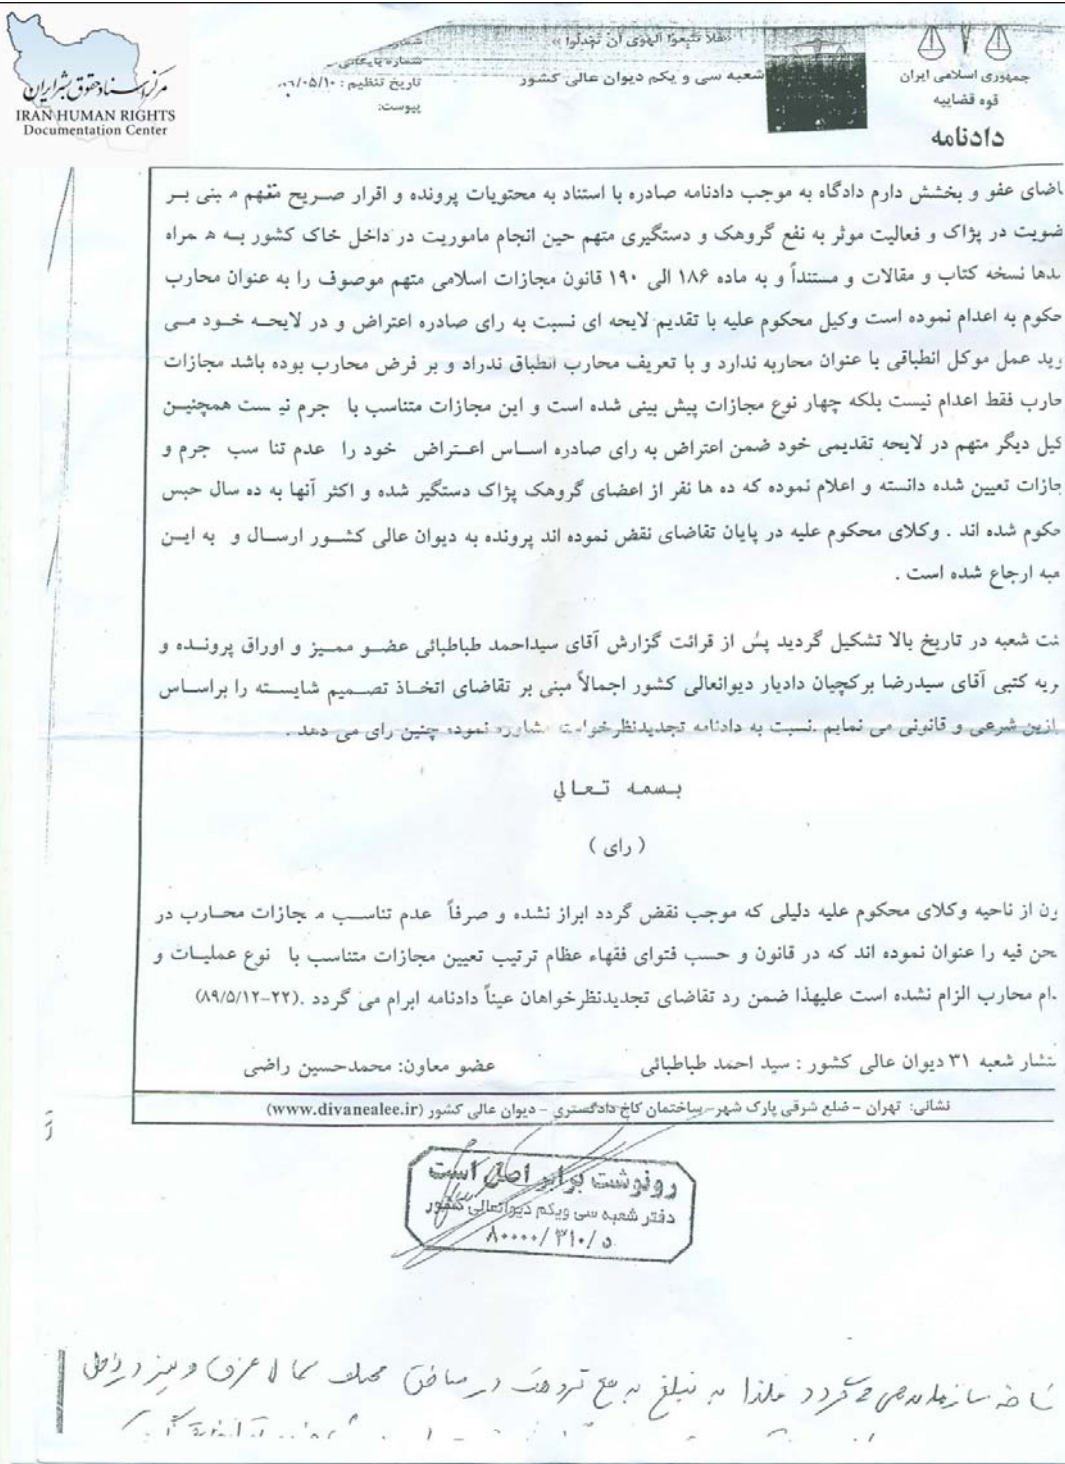 مرکز اسناد حقوق بشر ایران
IRAN HUMAN RIGHTS
Documentation Center
«فلا تتبعوا الهوی ان تعدلوا»
شعبه سی و یکم دیوان عالی کشور
شماره بایگانی
تاریخ تنظیم :
پیوست:
جمهوری اسلامی ایران
قوه قضاییه
دادنامه
اضای عفو و بخشش دارم دادگاه به موجب دادنامه صادره با استناد به محتویات پرونده و اقرار صریح متهم مبنی بر
ضویت در پژاک و فعالیت موثر به نفع گروهک و دستگیری متهم حین انجام ماموریت در داخل خاک کشور به همراه
دها نسخه کتاب و مقالات و مستنداً و به ماده ۱۸۶ الی ۱۹۰ قانون مجازات اسلامی متهم موصوف را به عنوان محارب
حکوم به اعدام نموده است وکیل محکوم علیه با تقدیم لایحه ای نسبت به رای صادره اعتراض و در لایحه خود می
وید عمل موکل انطباقی با عنوان محاربه ندارد و با تعریف محارب انطباق ندراد و بر فرض محارب بوده باشد مجازات
حارب فقط اعدام نیست بلکه چهار نوع مجازات پیش بینی شده است و این مجازات متناسب با جرم نیست همچنین
کیل دیگر متهم در لایحه تقدیمی خود ضمن اعتراض به رای صادره اساس اعتراض خود را عدم تناسب جرم و
جازات تعیین شده دانسته و اعلام نموده که ده ها نفر از اعضای گروهک پژاک دستگیر شده و اکثر آنها به ده سال حبس
حکوم شده اند . وکلای محکوم علیه در پایان تقاضای نقض نموده اند پرونده به دیوان عالی کشور ارسال و به این
عبه ارجاع شده است .
ئت شعبه در تاریخ بالا تشکیل گردید پس از قرائت گزارش آقای سیداحمد طباطبائی عضو ممیز و اوراق پرونده و
ریه کتبی آقای سیدرضا برکچیان دادیار دیوانعالی کشور اجمالاً مبنی بر تقاضای اتخاذ تصمیم شایسته را براساس
ازین شرعی و قانونی می نمایم .نسبت به دادنامه تجدیدنظرخواسته مشاوره نموده چنین رای می دهد .
بسمه تعالي
( رای )
ون از ناحیه وکلای محکوم علیه دلیلی که موجب نقض گردد ابراز نشده و صرفاً عدم تناسب مجازات محارب در
حن فیه را عنوان نموده اند که در قانون و حسب فتوای فقهاء عظام ترتیب تعیین مجازات متناسب با نوع عملیات و
دام محارب الزام نشده است علیهذا ضمن رد تقاضای تجدیدنظرخواهان عیناً دادنامه ابرام می گردد .(۲۲-۸۹/۵/۱۲)
تشار شعبه ۳۱ دیوان عالی کشور : سید احمد طباطبائی عضو معاون: محمدحسین راضی
نشانی: تهران - ضلع شرقی پارک شهر- ساختمان کاخ دادگستری - دیوان عالی کشور (www.divanealee.ir)
رونوشت برابر اصل است
دفتر شعبه سی ویکم دیوانعالی کشور
۸۰۰۰۰/۳۱۰/د